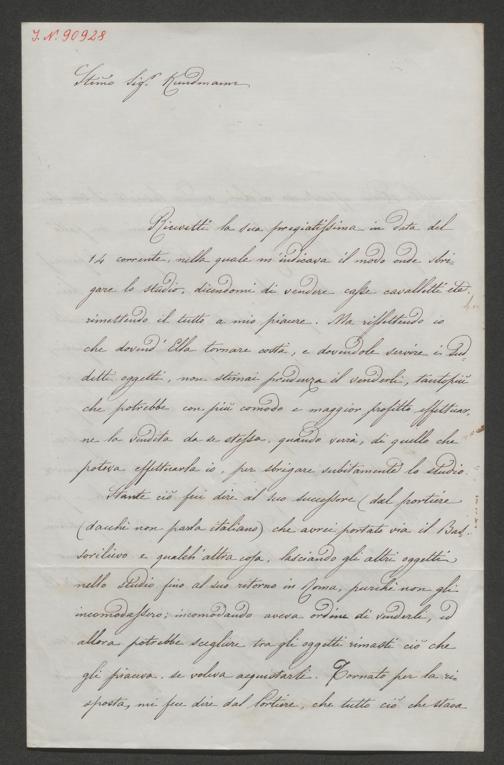 J. N. 90928
Stimo Sigr Kundmann
Ricevetti la sua pregiatissima in data del
14 corrente, nella quale m'indicava il modo onde sbri
gare lo studio, dicendomi di vendere casse cavalletti etc.
rimettendo il tutto a mio piacere. Ma riflettendo io
che dovend' Ella tornare costà, e dovendole servire i sud,
detti oggetti, non stimai prudenza il venderli, tantopiù
che potrebbe con più comodo e maggior profitto effettuar,
ne la vendita da se stessa, quando verrà, di quello che
poteva effettuarla io, per sbrigare subitamente lo studio.
Stante ciò feci dire al suo successore (dal portiere
(dacchè non parla italiano) che avrei portato via il Bas,
sorilievo e qualch'altra cosa, lasciando gli altri oggetti
nello studio fino al suo ritorno in Roma, purchè non gli
incomodassero; incomodando aveva ordine di venderle, ed
allora potrebbe scegliere tra gli oggetti rimasti ciò che
gli piaceva, se voleva acquistarli. Tornato per la ri
sposta, mi fece dire dal Portiere, che tutto ciò che stava